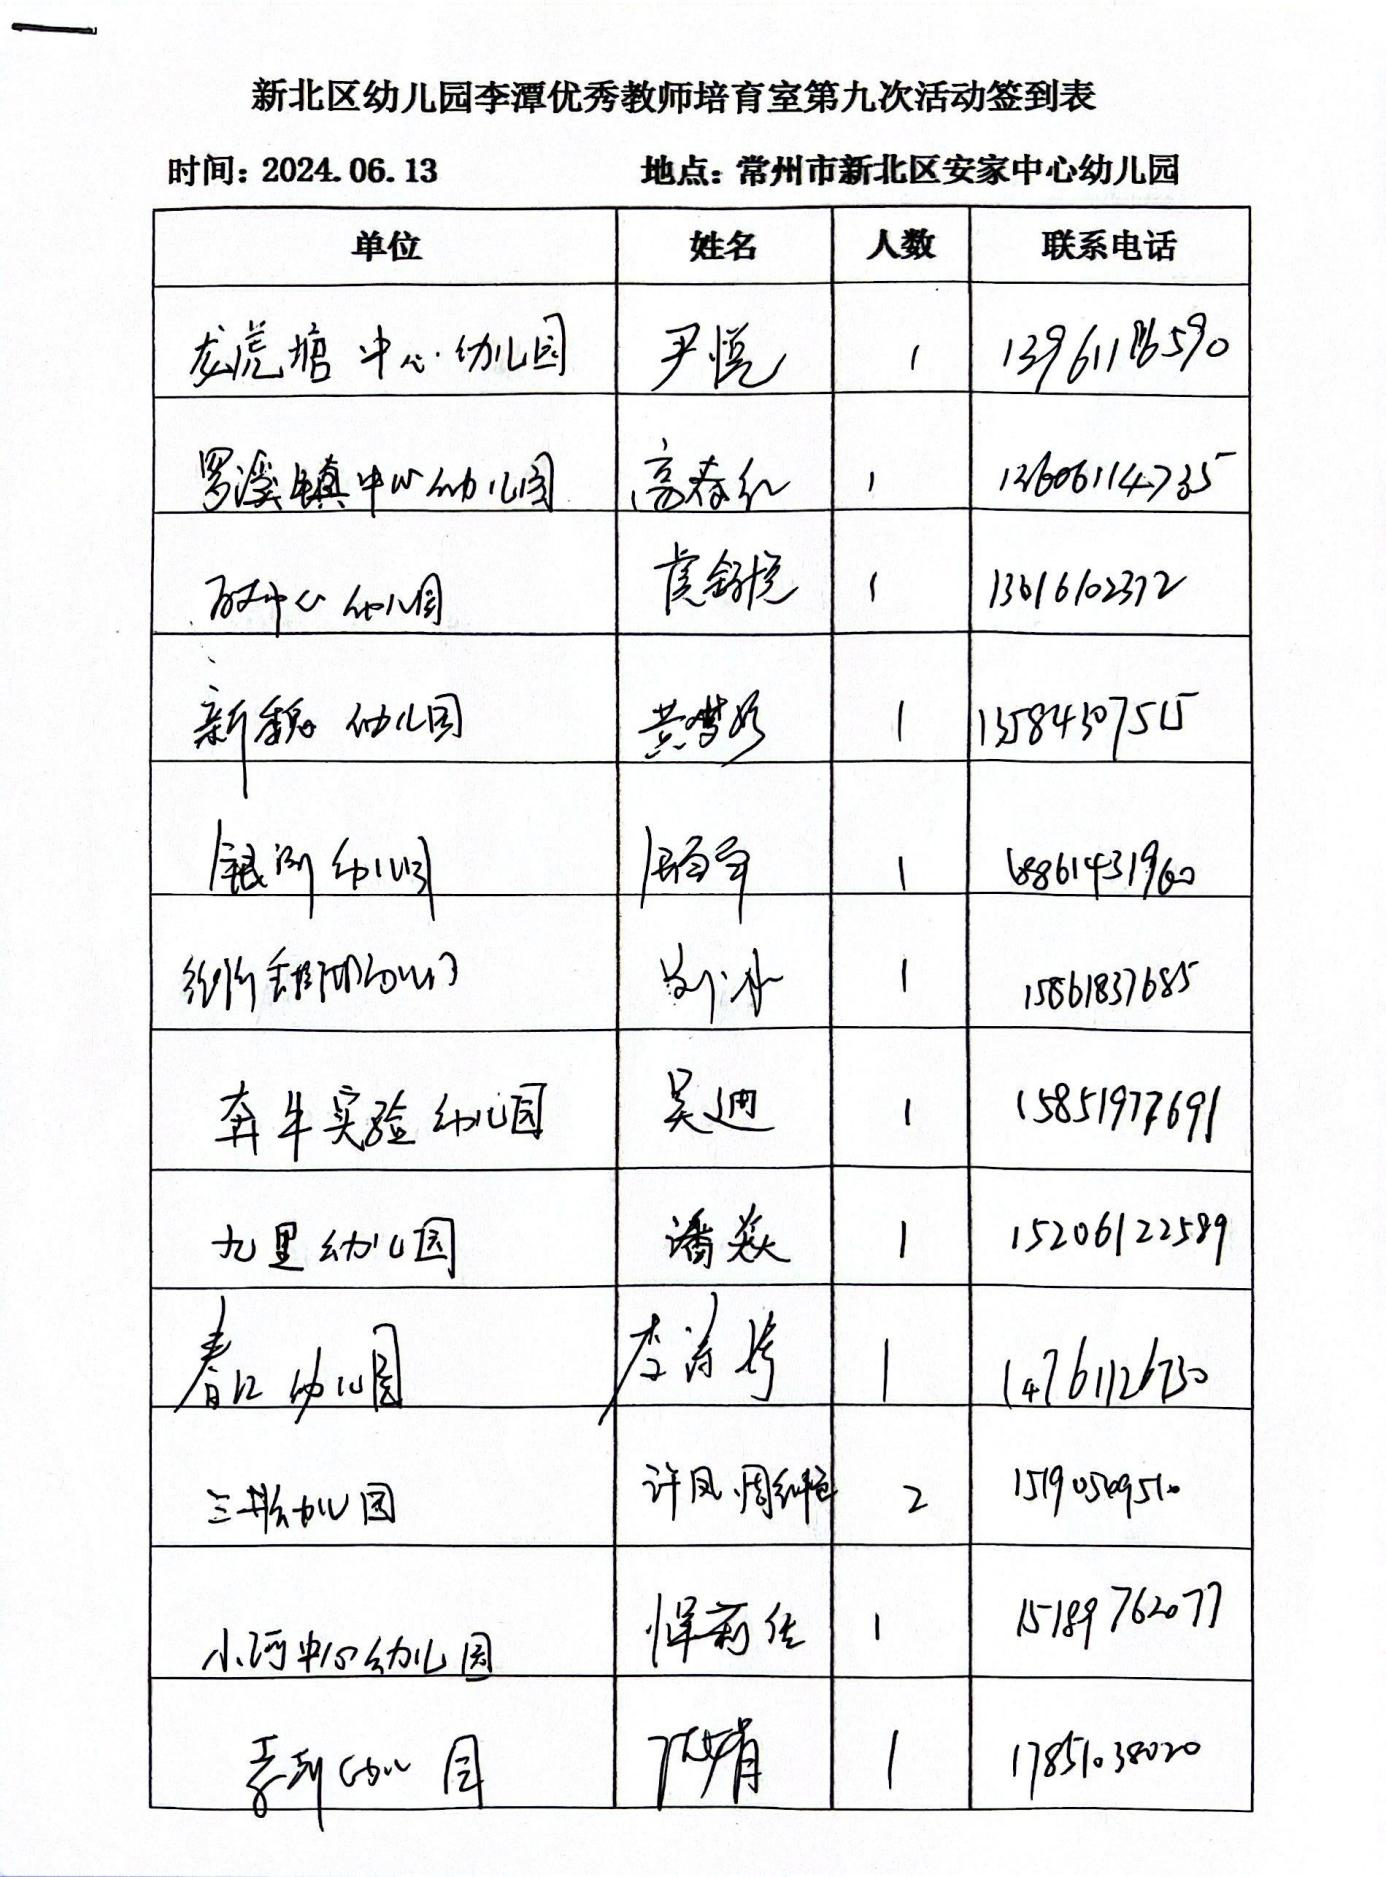 新北区幼儿园李潭优秀教师培育室第九次活动签到表
时间: 2024.06.13 地点: 常州市新北区安家中心幼儿园
单位 姓名 人数 联系电话
龙虎塘中心幼儿园 尹悦 1 13961116590
罗溪镇中心幼儿园 高春红 1 13606114735
中心幼儿园 虞舒悦 1 13616102372
新魏幼儿园 黄梦婷 1 13584307515
银河幼儿园 1
幼儿园 1 15861837685
奔牛实验幼儿园 吴迪 1 15851977691
九里幼儿园 潘焱 1 15206122589
春江幼儿园 李 1 14761126730
三井幼儿园 许凤、周 2 15190509510
小河中心幼儿园 恽莉佳 1 15189762077
幼儿园 陈婧 1 17851038020